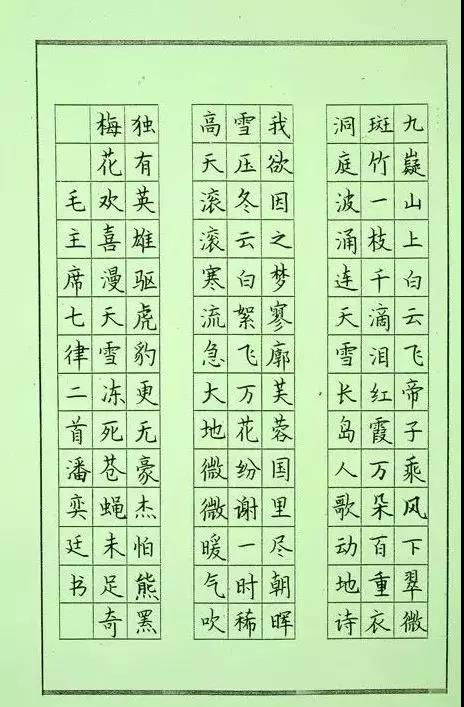 九嶷山上白云飞帝子乘风下翠微
斑竹一枝千滴泪红霞万朵百重衣
洞庭波涌连天雪长岛人歌动地诗
我欲因之梦寥廓芙蓉国里尽朝晖
雪压冬云白絮飞万花纷谢一时稀
高天滚滚寒流急大地微微暖气吹
独有英雄驱虎豹更无豪杰怕熊罴
梅花欢喜漫天雪冻死苍蝇未足奇
毛主席七律二首潘奕廷书